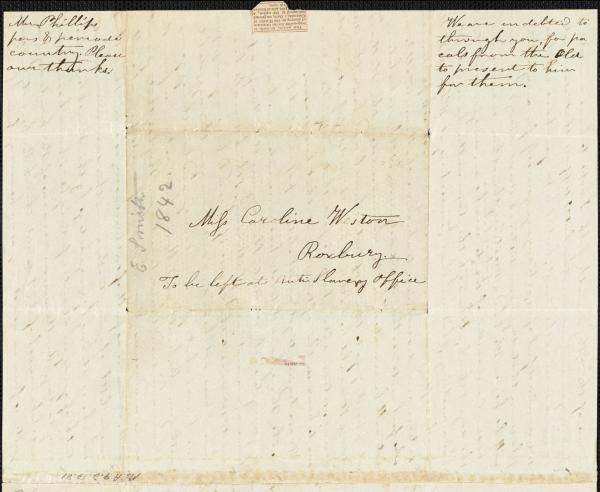 Mr Phillips
pers & periodi
country. Please
our thanks.
We are indebted to
through you, for pa
cals from the Old
to present to him
for them.
E. Smith
1842.
Miss Caroline Weston
Roxbury.
To be left at Anti Slavery Office